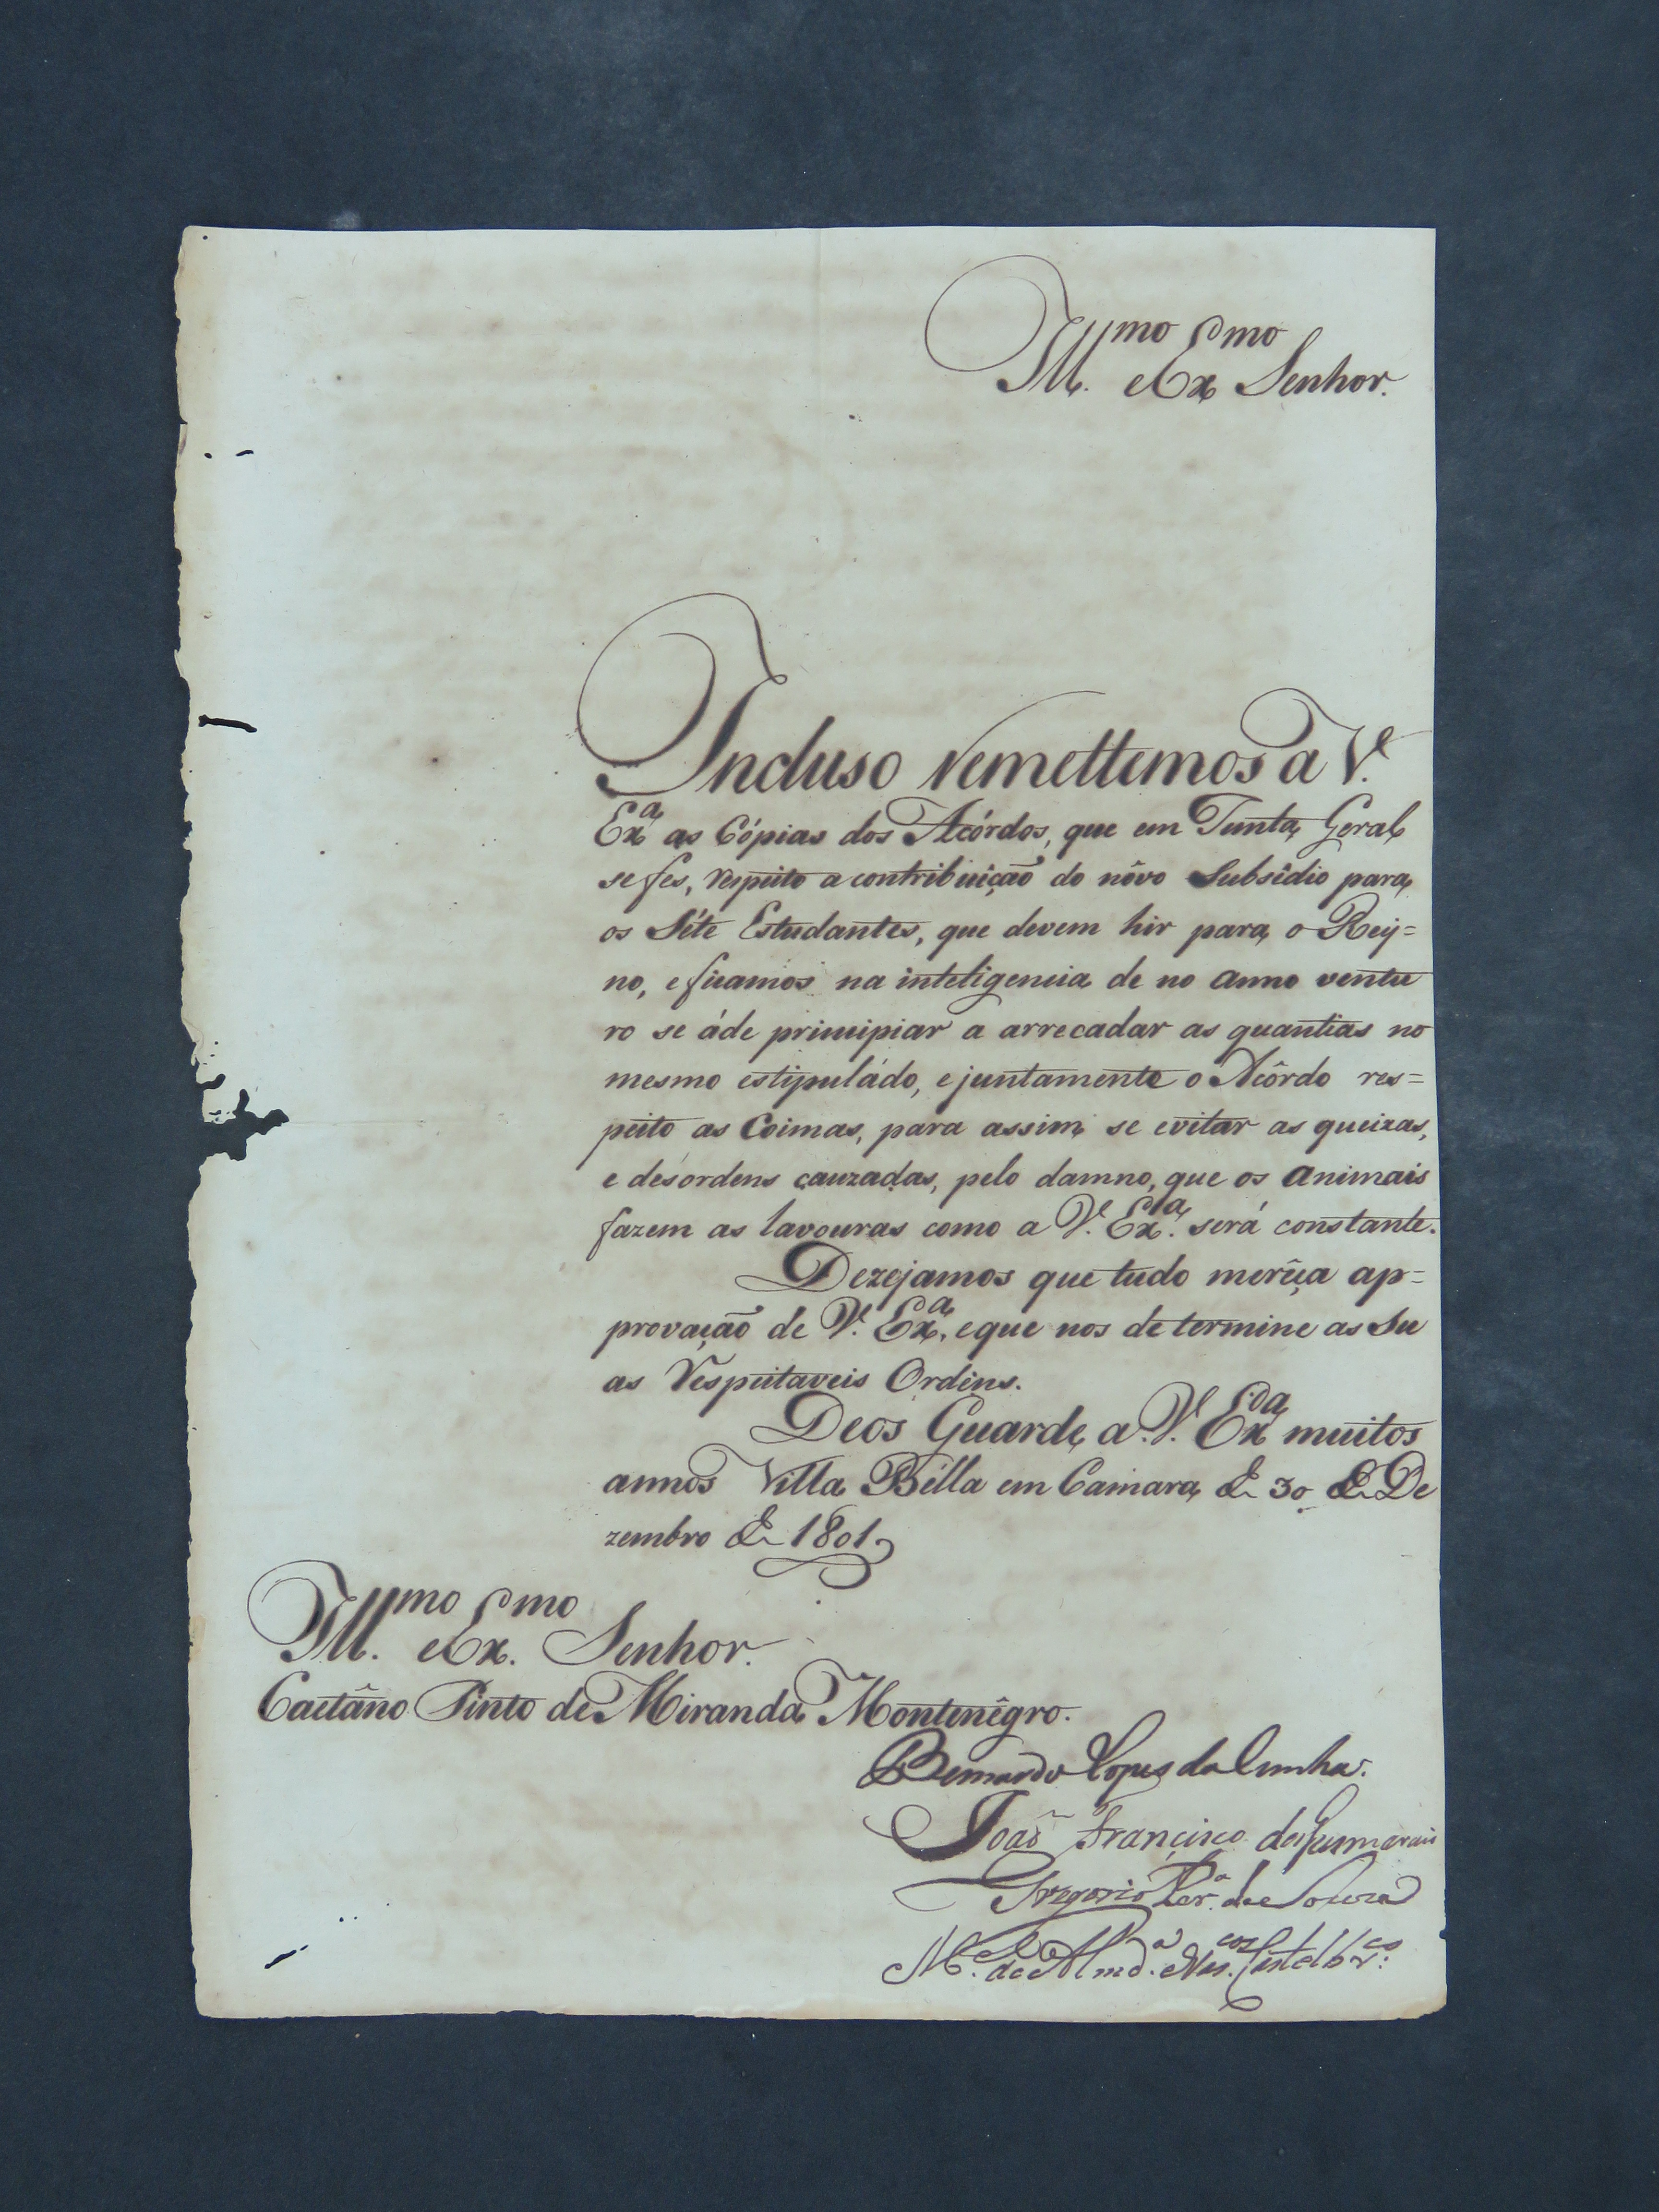 Ill.mo e Ex.mo Senhor.
Incluso remettemos a V.
Ex.a as Cópias dos Acórdos, que em Junta Geral
se fes, respeito a contribuiçaõ do nôvo Subsîdio para
os Séte Estudantes, que devem hir para o Rey=
no, e ficamos na inteligencia de no anno ventu
ro se áde principiar a arrecadar as quantias no
mesmo estipuládo, e juntamente o Acôrdo res=
peito as Coimas, para assim se evitar as queixas,
e desordens cauzadas, pelo damno, que os animais
fazem as lavouras como a V. Ex.a será constante.
Dezejamos que tudo merêça ap=
provaçaõ de V. Ex.a, e que nos determine as Su
as Respeitaveis Ordens.
Deos Guarde a V. Ex.a muitos
annos Villa Bella em Camara de 30 de De
zembro de 1801
Ill.mo e Ex.mo Senhor.
Caetâno Pinto de Miranda Montenêgro.
Bernardo Lopes da Cunha.
Joaõ Francisco de Guimarais
Gregorio Per.a de Souza
M.el de Almd.a e Vas.cos Castelbr.co